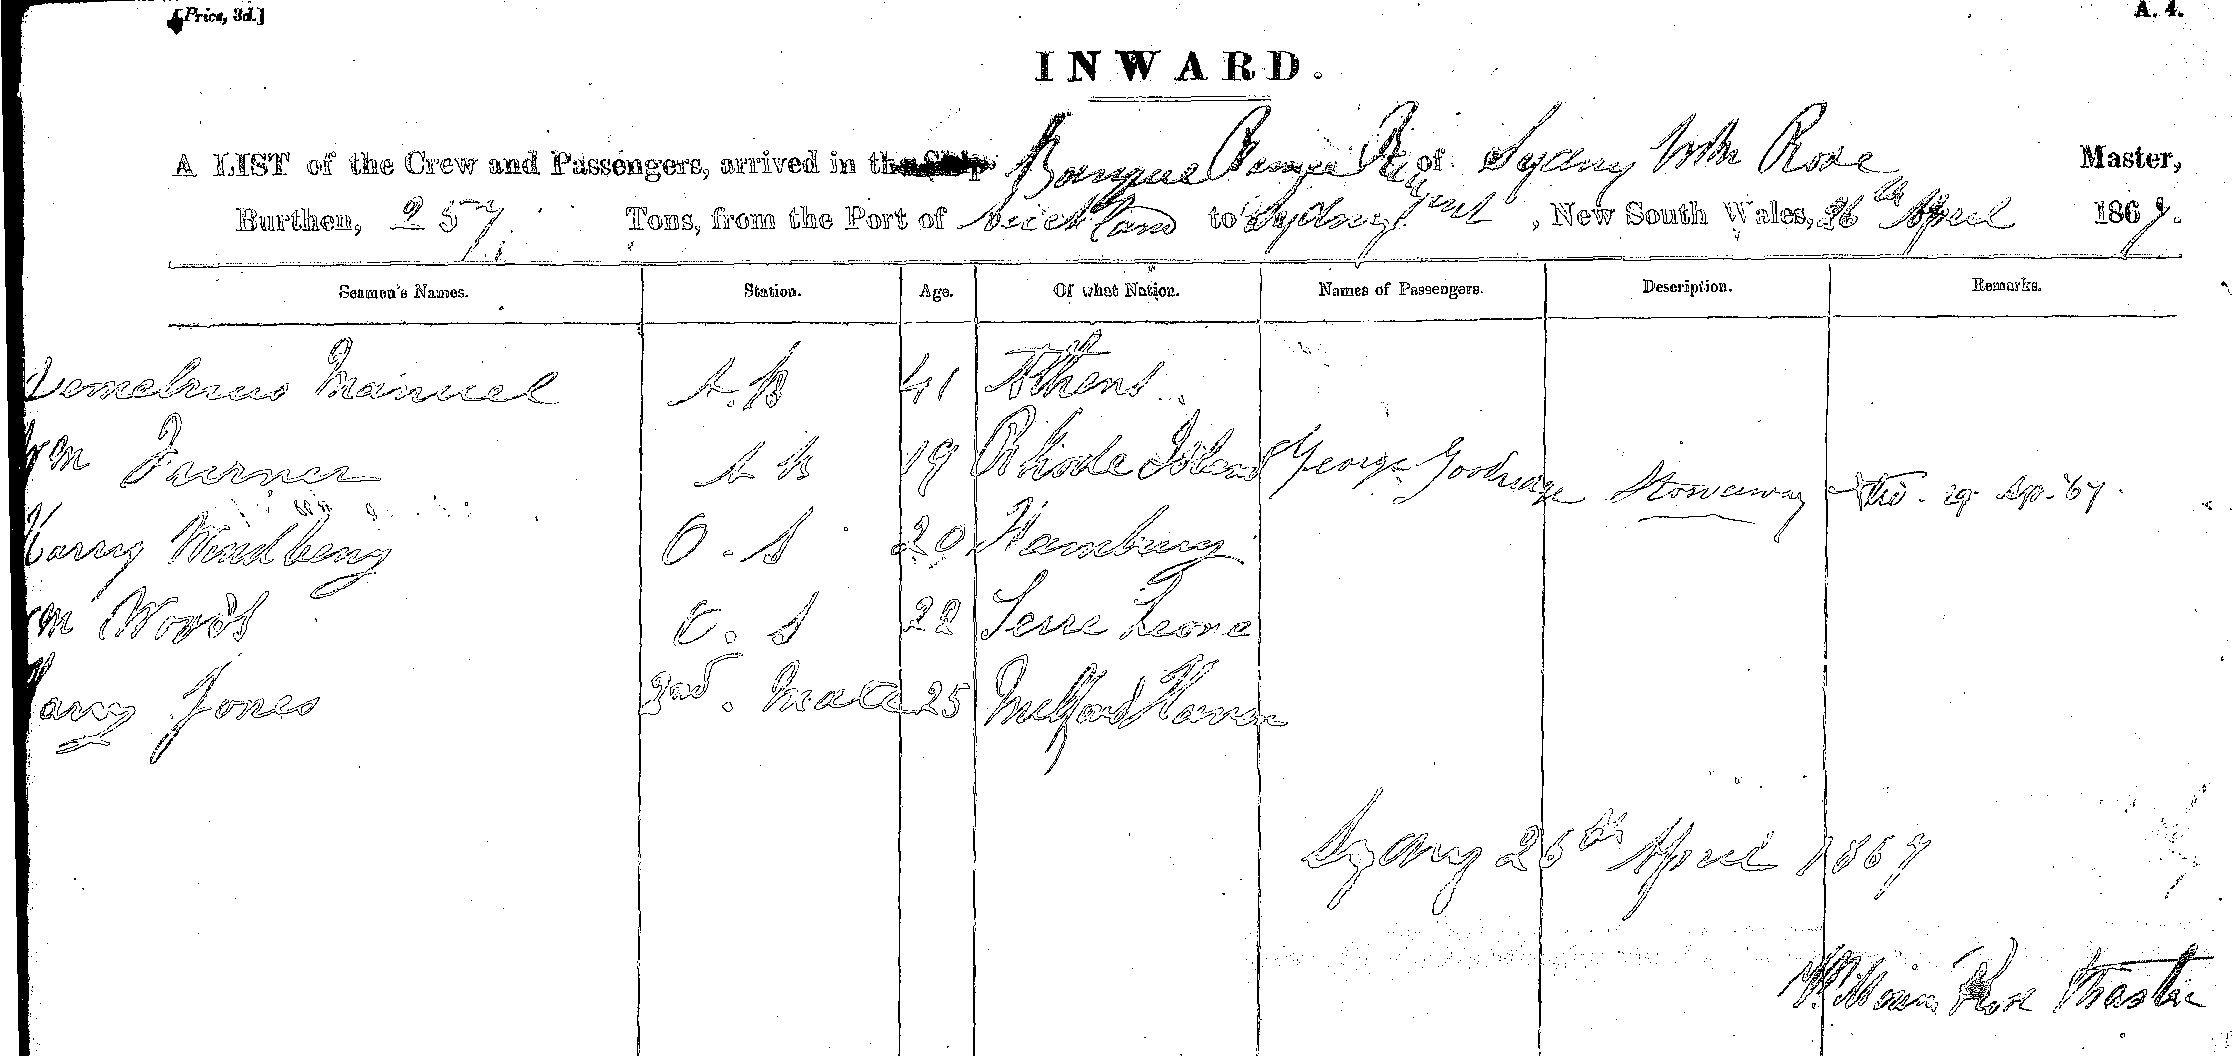 [Price, 3d.] A. 4.
INWARD.
A LIST of the Crew and Passengers, arrived in the Ship Barque Prince Re of Sydney Wm Rose Master,
Burthen, 257 Tons, from the Port of Auckland to Sydney gent, New South Wales, 26th April 1867.
Seamen's Names. Station. Age. Of what Nation. Names of Passengers. Description. Remarks.
Demetrius Manuel A. B 41 Athens
Wm Turner A B 19 Rhode Island George Goodridge Stowaway 29 Ap. '67.
Harry Windberg O. S 20 Hamburg
Wm Woods O. S 22 Serre Leone
Harry Jones 2nd. Mate 25 Milford Haven
Sydney 26th April 1867
William Rose Master